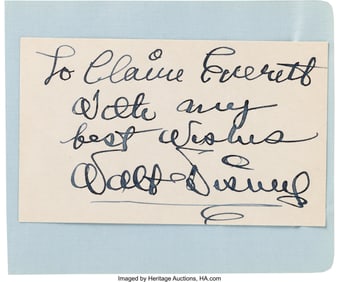 To Claire Everett
With my
best Wishes
Walt Disney
Imaged by Heritage Auctions, HA.com